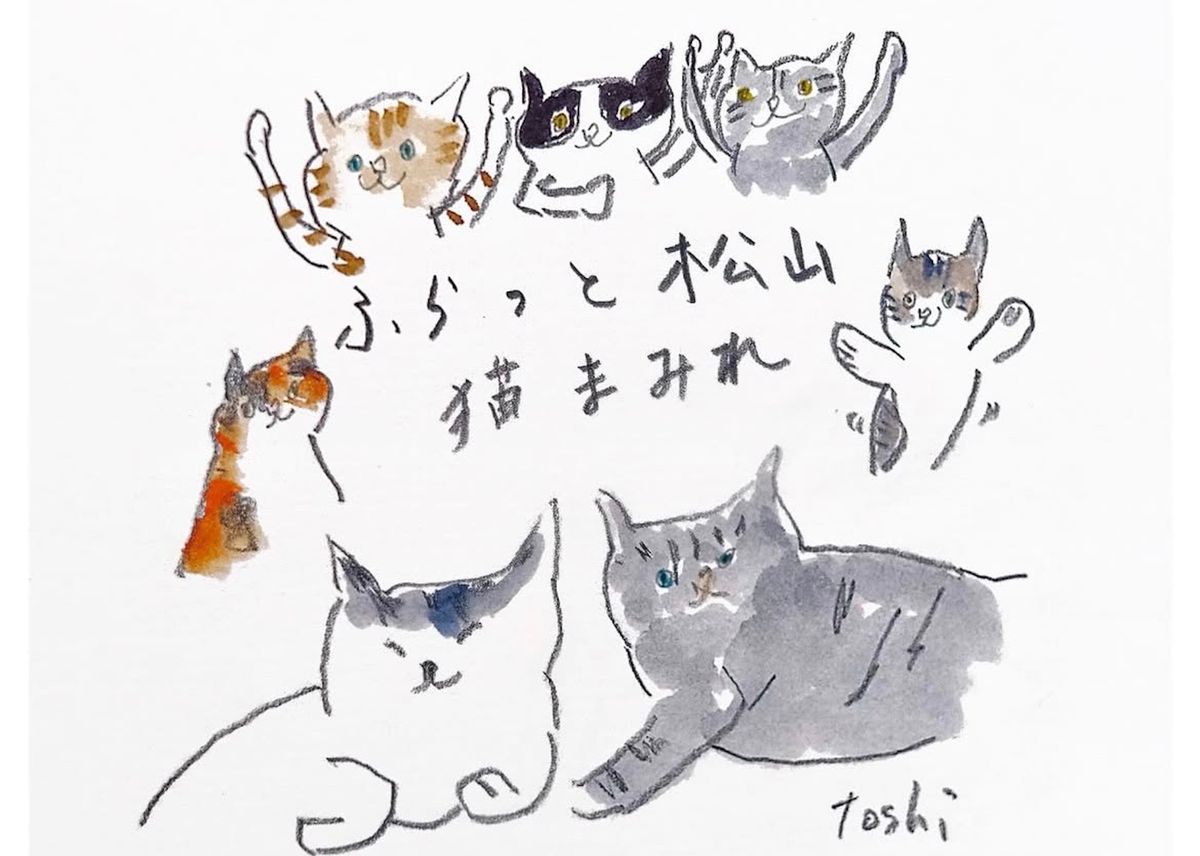 ふらっと松山
猫まみれ
toshi